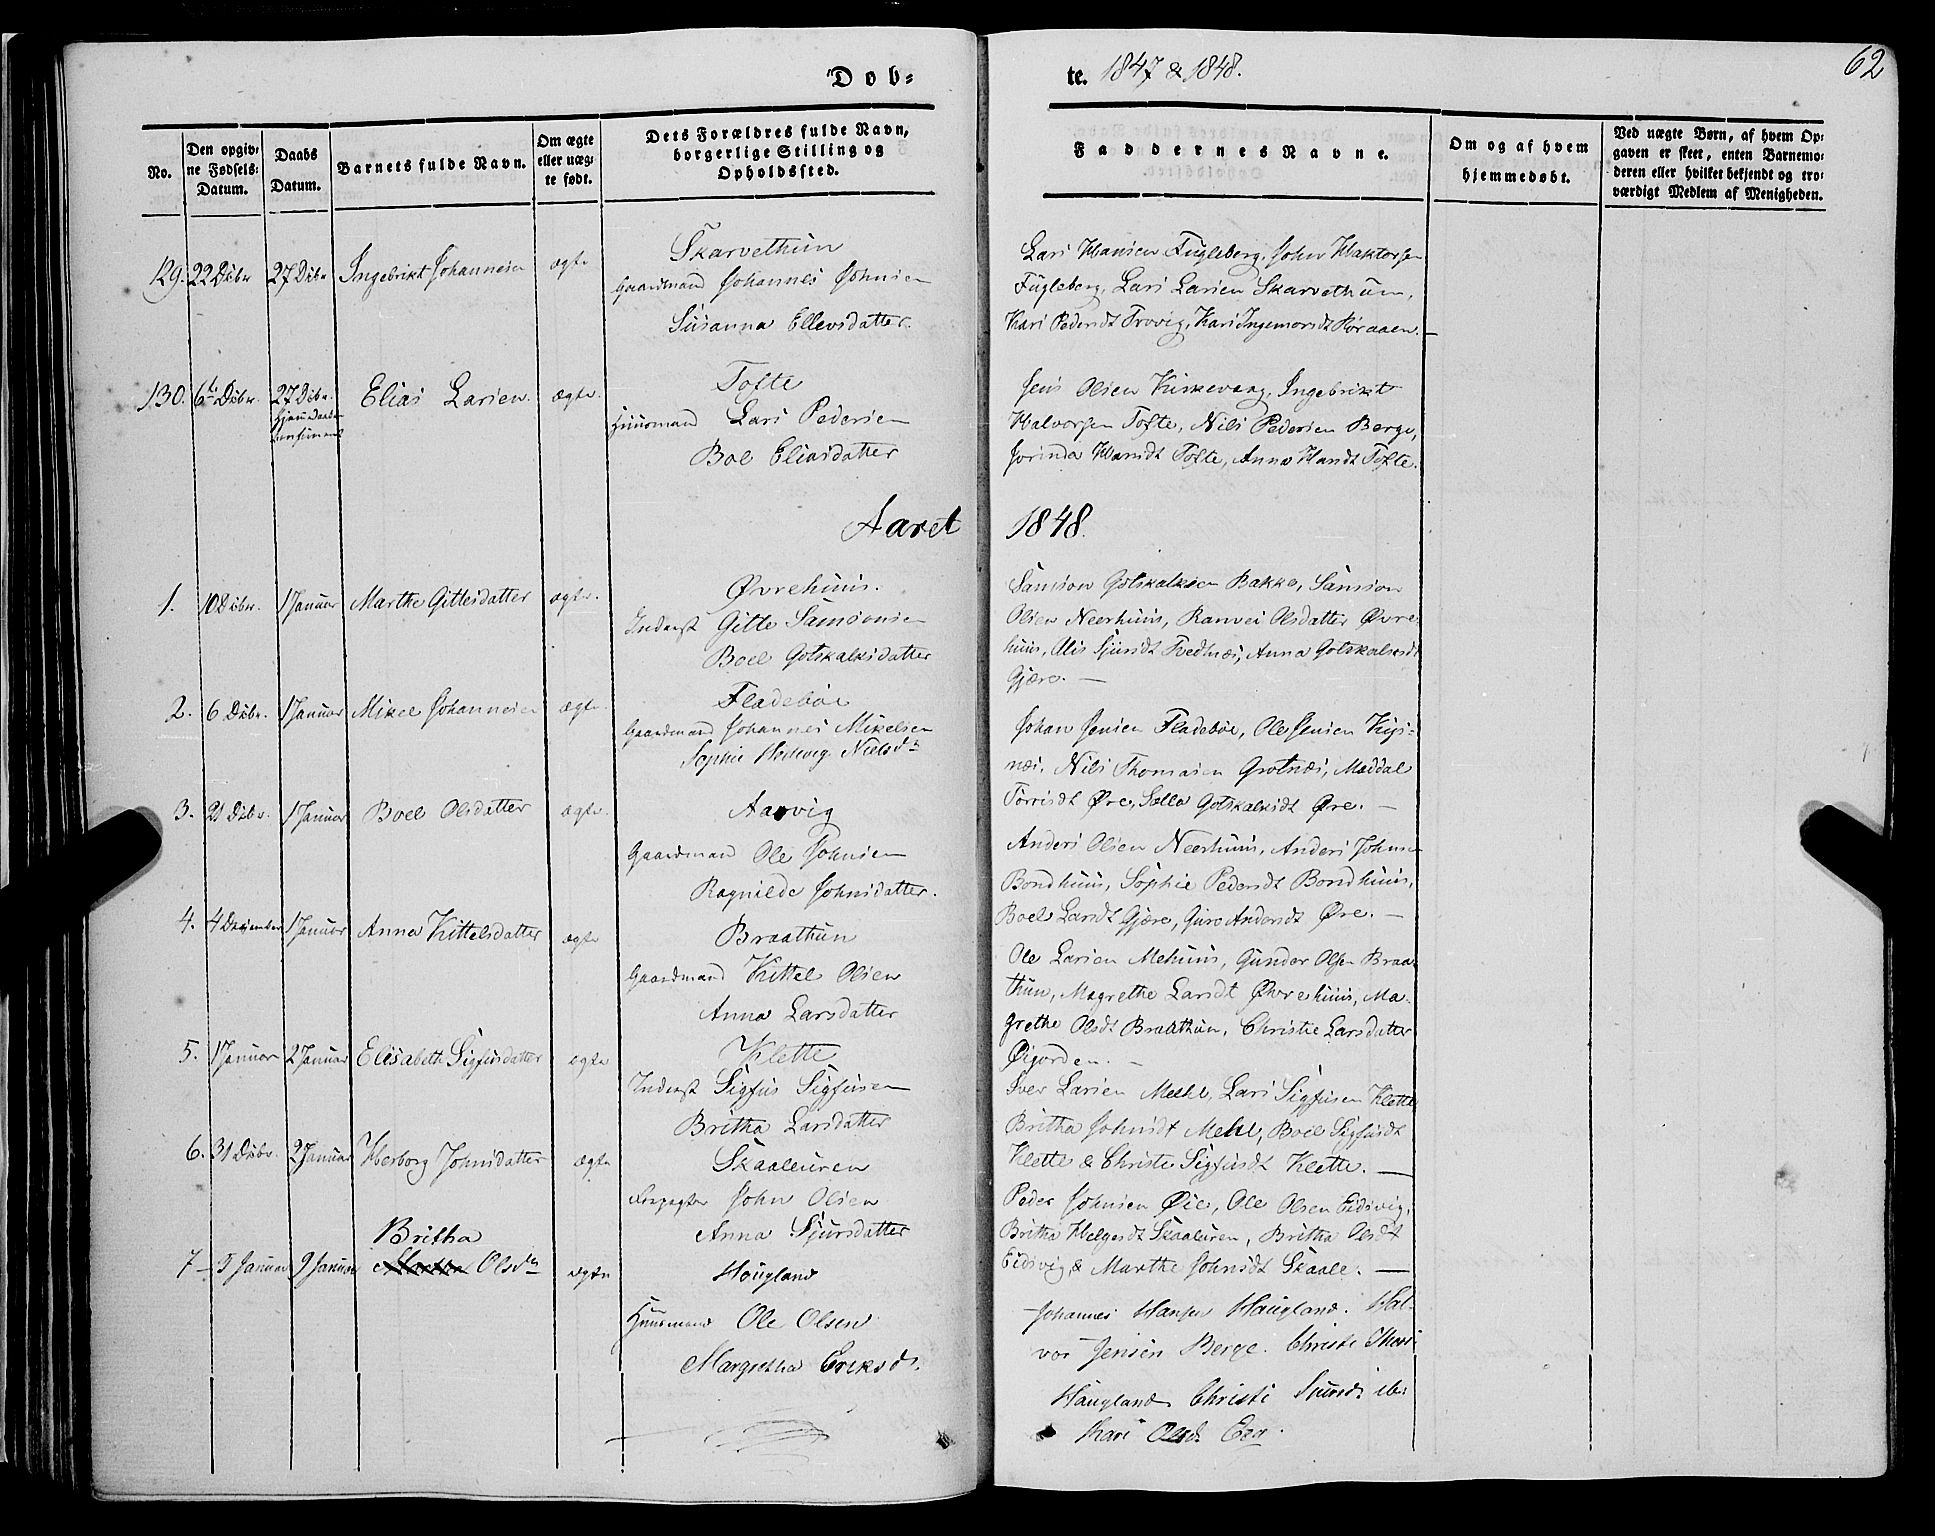 Dob=
te. 1847 & 1848.
62
No.
Den opgiv=
ne Fødsels=
Datum.
Daabs
Datum.
Barnets fulde Navn.
Om ægte
eller uæg=
te født.
Dets Forældres fulde Navn,
borgerlige Stilling og
Opholdssted.
Faddernes Navne.
Om og af hvem
hjemmedøbt.
Ved uægte Børn, af hvem Op=
gaven er skeet, enten Barnemo=
deren eller hvilket bekjendt og tro=
værdigt Medlem af Menigheden.
129. 22 Dsbr 27 Dsbr Ingebrikt Johannesen ægte
Skarvethun
Gaardmand Johannes Johnsen
Susanna Ellevsdatter.
Lars Hansen Fugleberg, John Haktorsen
Fugleberg, Lars Larsen Skarvethun,
Kari Pedersdt Trovig, Kari Ingemorsdt Røraaen.
130. 6te Dsbr. 27 Dsbr. Elias Larsen. ægte.
Hjemdaaben
Tofte
Huusmand Lars Pedersen
Boel Eliasdatter
Jens Olsen Kirkevaag, Ingebrikt
Halvorsen Tofte, Nils Pedersen Berge,
Jorinda Hansdt Tofte, Anna Hansdt Tofte.
Aaret 1848.
1. 10 Dsbr. 1 Januar Marthe Gittesdatter ægte.
Øvrehuus.
Inderst Gitte Samsonsen
Boel Gotskalksdatter
Samson Gotskalksen Bakke, Samson
Olsen Neerhuus, Ranvei Olsdatter Øvre
huus, Alis Sjursdt Tvedtnes, Anna Gotskalksdt
Gjære.
2. 6 Dsbr. 1 Januar Mikel Johannesen ægte
Fladebøe
Gaardmand Johannes Mikelsen
Sophie Hedevig Nielsdr
Johan Jensen Fladebøe, Ole Jensen
næs, Nils Thomasen Grotnæs, Maddal
Torrisdt Øre, Sella Gotskalksdt Øre.
3. 21 Dsbr. 1 Januar Boel Olsdatter ægte.
Aarvig
Gaardmand Ole Johnsen
Ragnilde Johnsdatter.
Anders Olsen Neerhuus, Anders Johnsen
Bondhuus, Sophie Pedersdt Bondhuus,
Boel Larsdt Gjære, Guro Andersdt Øre.
4. 4 December 1 Januar Anna Kittelsdatter ægte
Braathun
Gaardmand Kittel Olsen
Anna Larsdatter
Ole Larsen Mehuus, Gunder Olsen Braa-
thun, Magrethe Larsdt Øvrehuus, Ma-
grethe Olsdt Braathun, Christie Larsdatter
Øigorden.
5. 1 Januar 2 Januar Elisabeth Sigfusdatter ægte
Klette
Inderst Sigfus Sigfusen
Britha Larsdatter
Iver Larsen Mehl, Lars Sigfusen Klette
Britha Johnsdt Mehl, Boel Sigfusdt
Klette & Christi Sigfusdt Klette.
6. 31 Dsbr. 2 Januar Herborg Johnsdatter ægte
Skaaleuren
Forpagter John Olsen
Anna Sjursdatter
Peder Johnsen Øie, Ole Olsen Eidsvig,
Britha Helgesdt Skaaluren, Britha Olsdt
Eidsvig, & Marthe Johnsdt Skaale.
Britha
7 5 Januar 9 Januar Olsdr ægte
Haugland
Huusmand Ole Olsen
Margretha Eriksd.
Johannes Hansen Haugland. Hal-
vor Jensen Berge. Christi
Haugland Christi Sjursd
Kari Olsd.